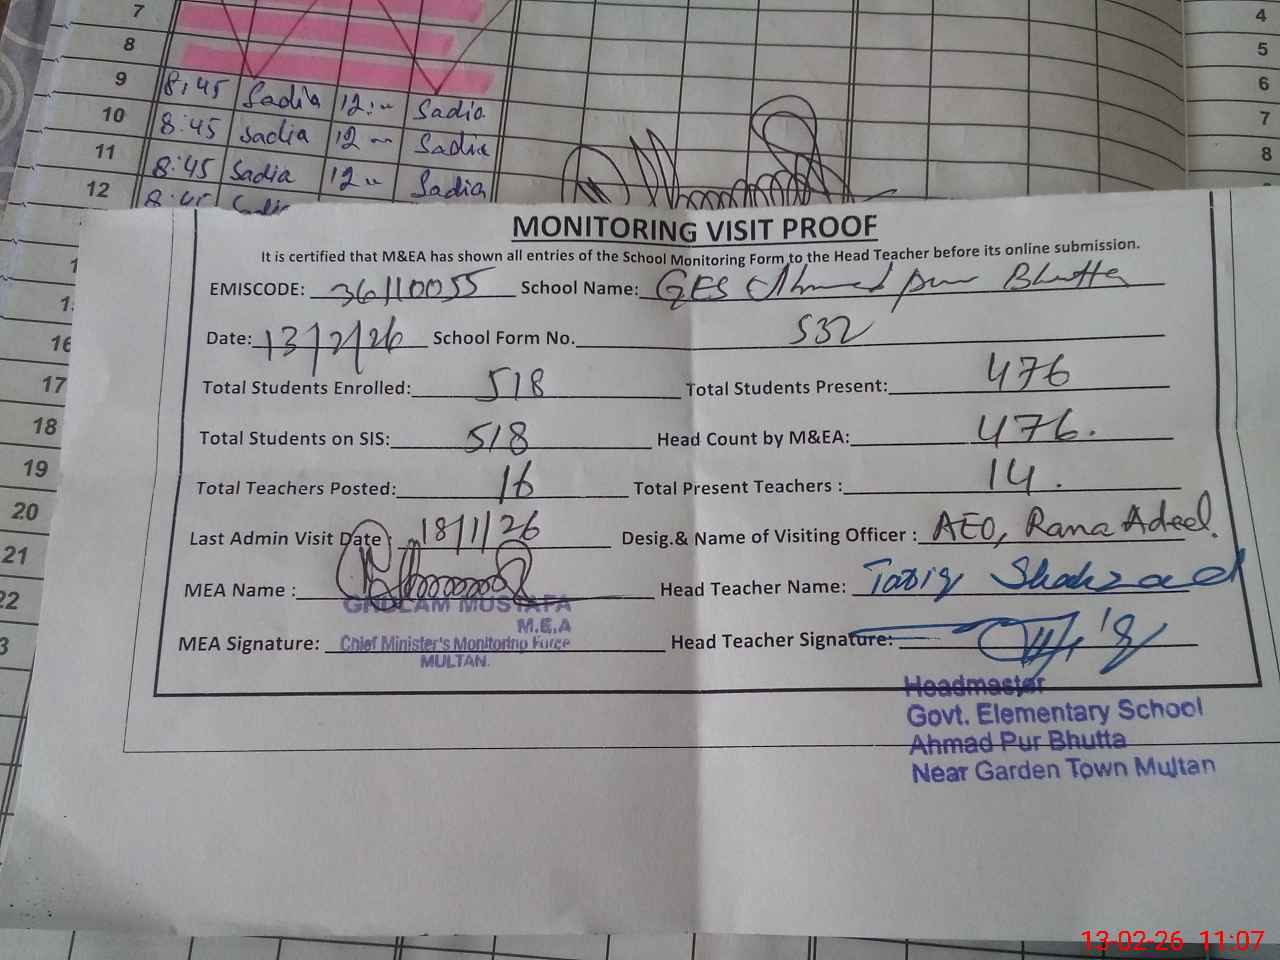 7
8
9 8:45 Sadia 12:" Sadia
10 8:45 Sadia 12 " Sadia
11 8:45 Sadia 12 " Sadia
12 8:45
16
17
18
19
20
21
22
3
4
5
6
7
8
MONITORING VISIT PROOF
It is certified that M&EA has shown all entries of the School Monitoring Form to the Head Teacher before its online submission.
EMISCODE: 36110055 School Name: GES Ahmed pur Bhutta
Date: 13/2/26 School Form No. 532
Total Students Enrolled: 518 Total Students Present: 476
Total Students on SIS: 518 Head Count by M&EA: 476.
Total Teachers Posted: 16 Total Present Teachers : 14.
Last Admin Visit Date : 18/1/26 Desig.& Name of Visiting Officer : AEO, Rana Adeel.
MEA Name : Head Teacher Name: Tariq Shahzad
GHULAM MUSTAFA
M.E.A
MEA Signature: Chief Minister's Monitoring Force Head Teacher Signature:
MULTAN.
Headmaster
Govt. Elementary School
Ahmad Pur Bhutta
Near Garden Town Multan
13-02-26 11:07